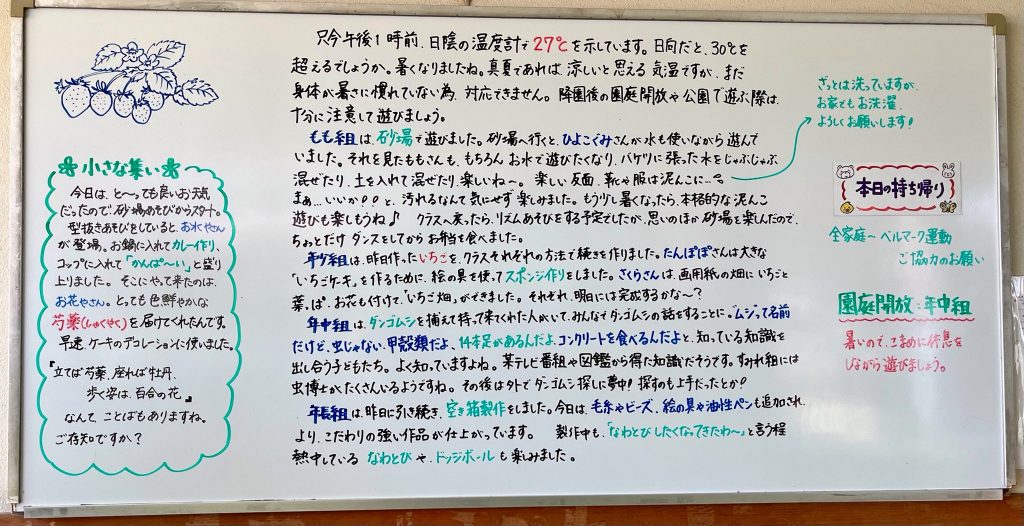 只今午後1時前、日陰の温度計で27℃を示しています。日向だと、30℃を
超えるでしょうか。暑くなりましたね。真夏であれば、涼しいと思える気温ですが、まだ
身体が暑さに慣れていない為、対応できません。降園後の園庭開放や公園で遊ぶ際は、
十分に注意して遊びましょう。
もも組は、砂場で遊びました。砂場へ行くと、ひよこぐみさんが水も使いながら遊んで
いました。それを見たももさんも、もちろんお水で遊びたくなり、バケツに張った水をじゃぶじゃぶ
混ぜたり、土を入れて混ぜたり、楽しいね〜。楽しい反面、靴や服は泥んこに…
まぁ…いいか!!と、汚れるなんて気にせず楽しみました。もう少し暑くなったら、本格的な泥んこ
遊びも楽しもうね♪ クラスへ戻ったら、リズムあそびをする予定でしたが、思いのほか砂場を楽しんだので、
ちょっとだけダンスをしてからお弁当を食べました。
年少組は、昨日作ったいちごを、クラスそれぞれの方法で続きを作りました。たんぽぽさんは大きな
「いちごケーキ」を作るために、絵の具を使ってスポンジ作りをしました。さくらさんは、画用紙の畑にいちごと
葉っぱ、お花も付けて、「いちご畑」ができました。それぞれ、明日には完成するかな〜?
年中組は、ダンゴムシを捕えて持って来てくれた人がいて、みんなでダンゴムシの話をすることに。「ムシって名前
だけど、虫じゃない、甲殻類だよ、14本足があるんだよ、コンクリートを食べるんだよ」と、知っている知識を
出し合う子どもたち。よく知っていますよね。某テレビ番組や図鑑から得た知識だそうです。すみれ組には
虫博士がたくさんいるようですね。その後は外でダンゴムシ探しに夢中!探すのも上手だったとか!
年長組は、昨日に引き続き、空き箱製作をしました。今日は、毛糸やビーズ、絵の具や油性ペンも追加され、
より、こだわりの強い作品が仕上がっています。 製作中も、「なわとびしたくなってきたわ〜」と言う程
熱中しているなわとびや、ドッジボールも楽しみました。
小さな集い
今日は、と〜っても良いお天気
だったので、砂場あそびからスタート。
型抜きあそびをしていると、おれやさん
が登場。お鍋に入れてカレー作り、
コップに入れて「かんぱ〜い」と盛り
上りました。そこにやって来たのは、
お花やさん。とっても色鮮やかな
芍薬(しゃくやく)を届けてくれたんです。
早速、ケーキのデコレーションに使いました。
『立てば芍薬、座れば牡丹、
歩く姿は、百合の花』
なんて、ことばもありますね。
ご存知ですか?
ざっとは洗っていますが、
お家でもお洗濯、
よろしくお願いします!
本日の持ち帰り
全家庭〜ベルマーク運動
ご協力のお願い
園庭開放：年中組
暑いので、こまめに休息を
しながら遊びましょう。